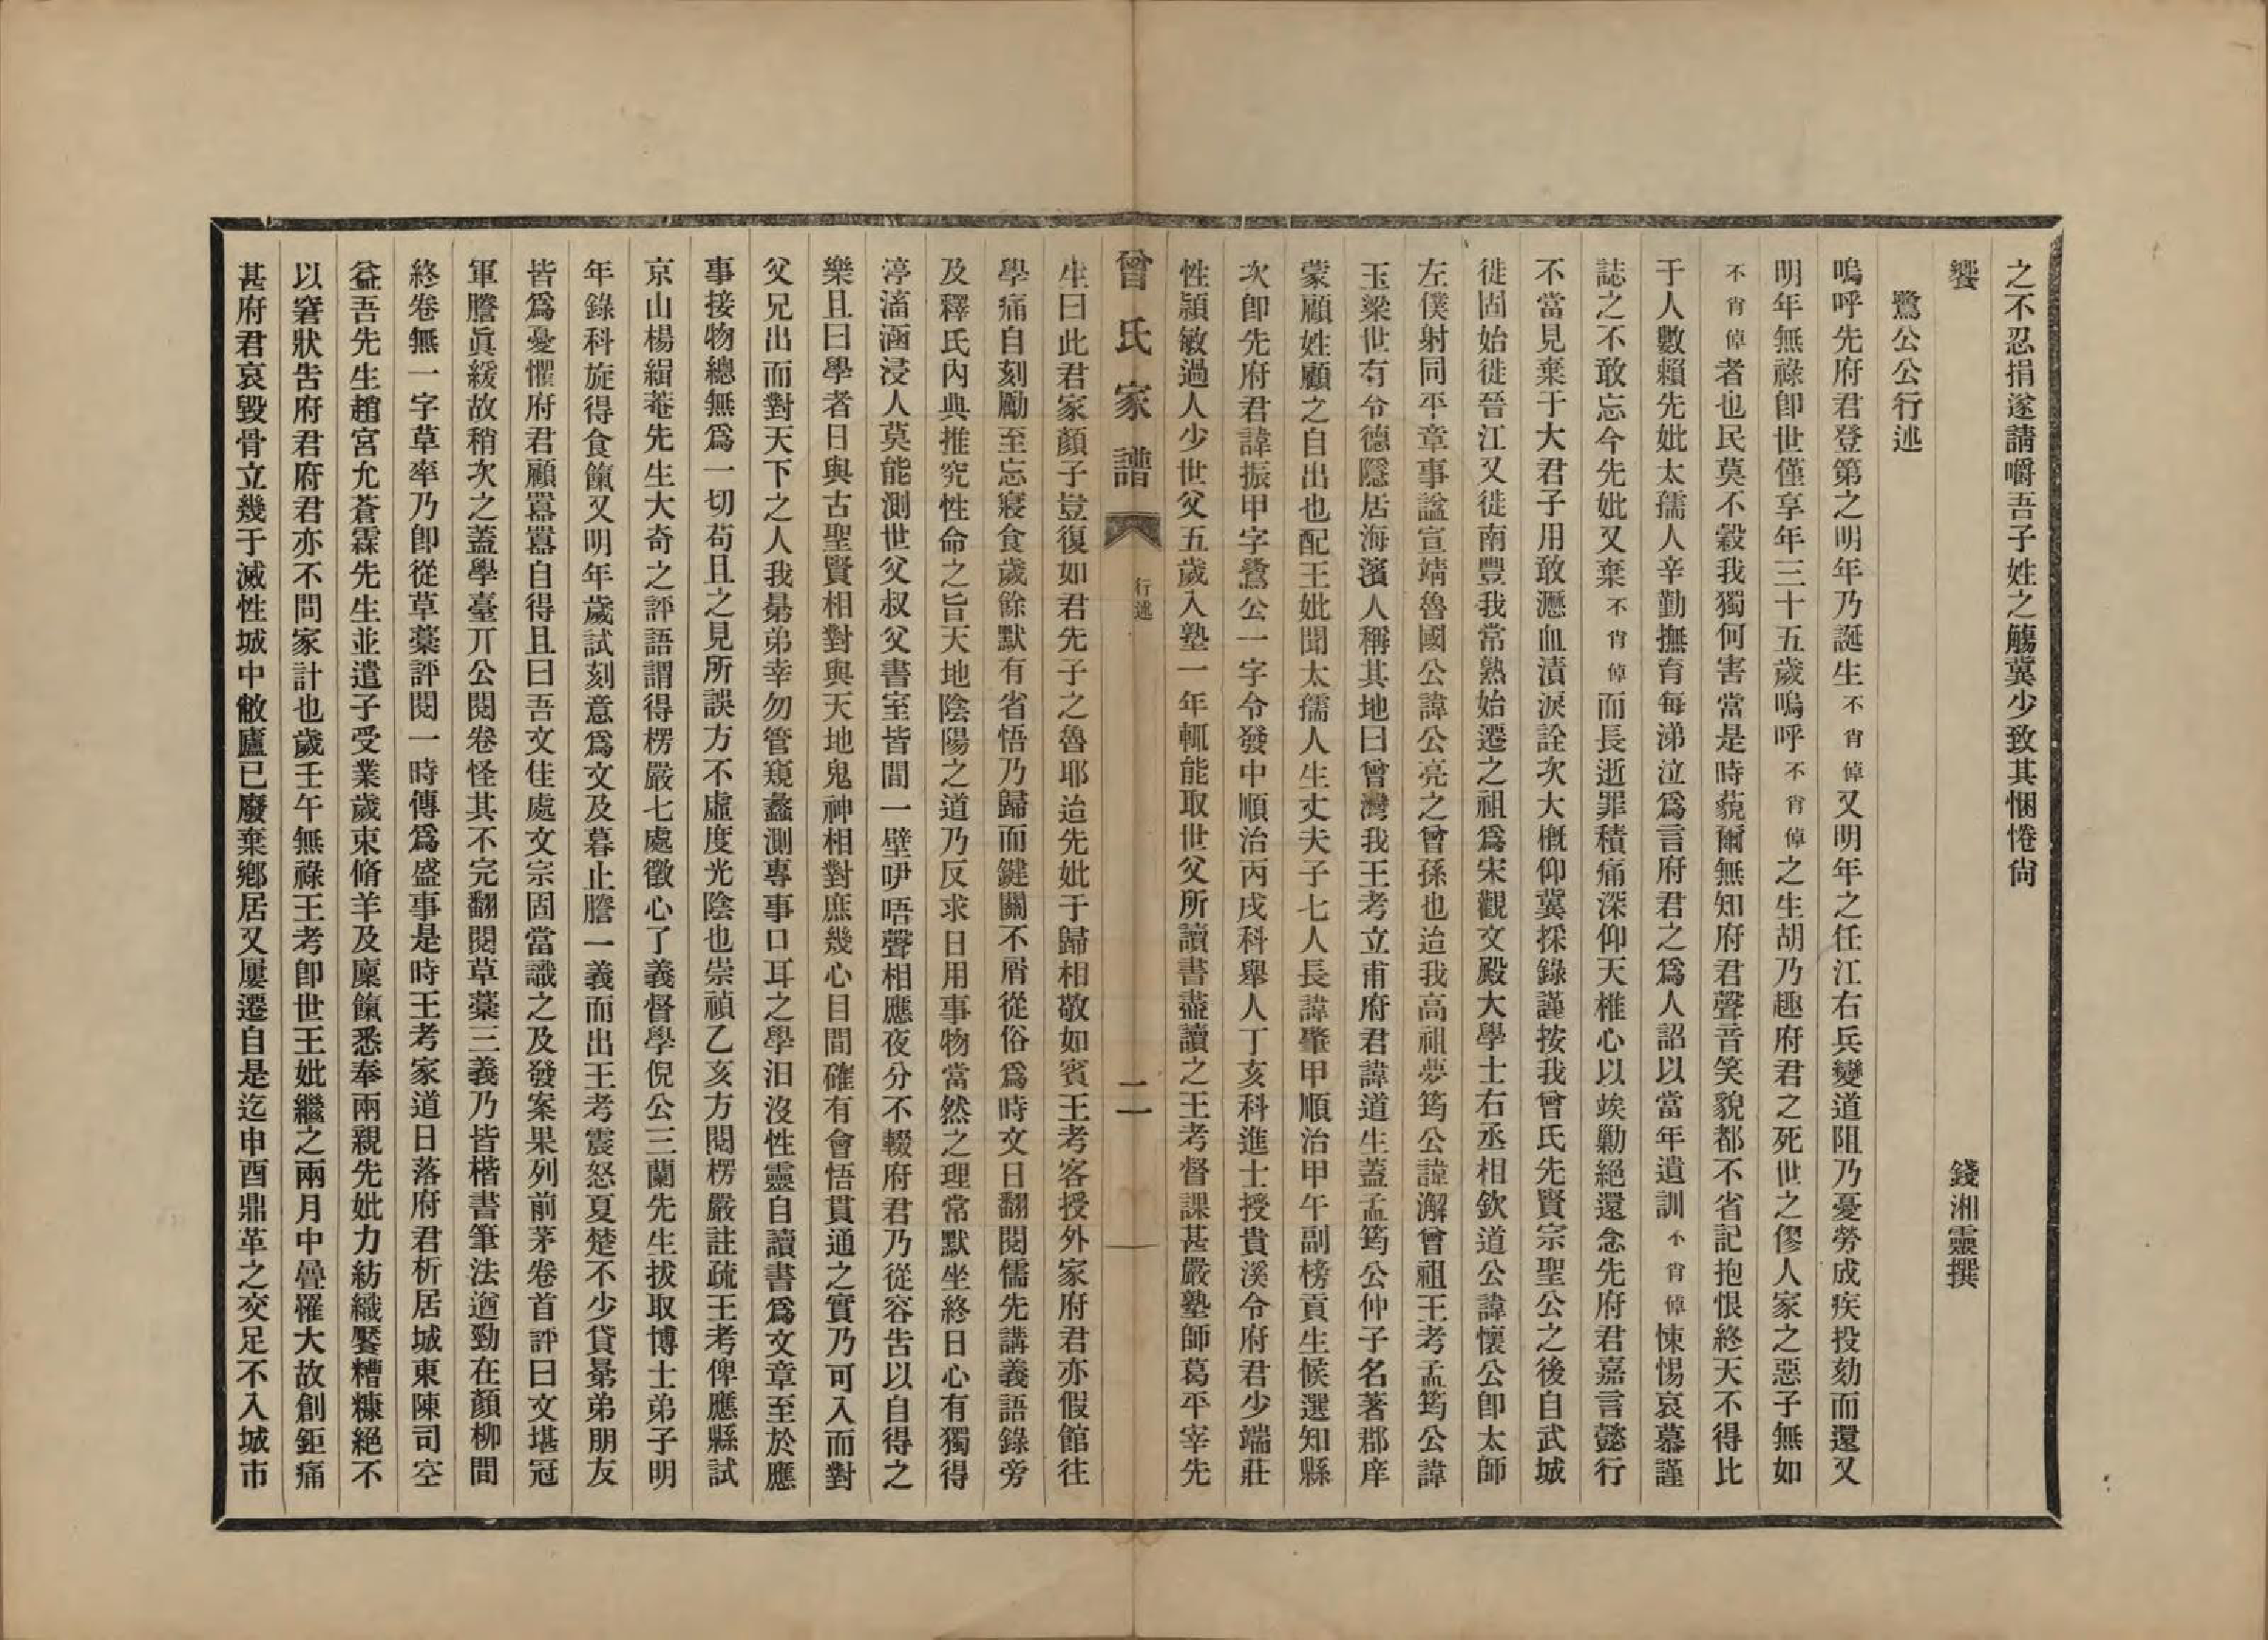 之不忍捐遂請嚼吾子姓之觴冀少致其悃惓尙
饗
鷺公公行述
錢湘靈撰
嗚呼先府君登第之明年乃誕生不肯倬又明年之任江右兵變道阻乃憂勞成疾投劾而還又
明年無祿卽世僅享年三十五歲嗚呼不肯倬之生胡乃趣府君之死世之僇人家之惡子無如
不肯倬者也民莫不穀我獨何害當是時藐爾無知府君聲音笑貌都不省記抱恨終天不得比
于人數賴先妣太孺人辛勤撫育每涕泣爲言府君之爲人詔以當年遺訓不肯倬悚惕哀慕謹
誌之不敢忘今先妣又棄不肯倬而長逝罪積痛深仰天椎心以竢勦絕還念先府君嘉言懿行
不當見棄于大君子用敢瀝血漬淚詮次大槪仰冀採錄謹按我曾氏先賢宗聖公之後自武城
徙固始徙晉江又徙南豐我常熟始遷之祖爲宋觀文殿大學士右丞相欽道公諱懷公卽太師
左僕射同平章事諡宣靖魯國公諱公亮之曾孫也迨我高祖夢筠公諱澥曾祖王考孟筠公諱
玉粱世有令德隱居海濱人稱其地曰曾灣我王考立甫府君諱道生蓋孟筠公仲子名著郡庠
蒙顧姓顧之自出也配王妣聞太孺人生丈夫子七人長諱肇甲順治甲午副榜貢生候選知縣
次卽先府君諱振甲字鷺公一字令發中順治丙戌科舉人丁亥科進士授貴溪令府君少端莊
性頴敏過人少世父五歲入塾一年輒能取世父所讀書盡讀之王考督課甚嚴塾師葛平宰先
曾氏家譜
行述
二
生曰此君家顏子豈復如君先子之魯耶迨先妣于歸相敬如賓王考客授外家府君亦假館往
學痛自刻勵至忘寢食歲餘默有省悟乃歸而鍵關不屑從俗爲時文日翻閱儒先講義語錄旁
及釋氏內典推究性命之旨天地陰陽之道乃反求日用事物當然之理常默坐終日心有獨得
渟滀涵浸人莫能測世父叔父書室皆間一壁咿唔聲相應夜分不輟府君乃從容吿以自得之
樂且曰學者日與古聖賢相對與天地鬼神相對庶幾心目間確有會悟貫通之實乃可入而對
父兄出而對天下之人我晜弟幸勿管窺蠡測專事口耳之學汨沒性靈自讀書爲文章至於應
事接物總無爲一切苟且之見所誤方不虛度光陰也崇禎乙亥方閱楞嚴註疏王考俾應縣試
京山楊緝菴先生大奇之評語謂得楞嚴七處徵心了義督學倪公三蘭先生拔取博士弟子明
年錄科旋得食餼又明年歲試刻意爲文及暮止謄一義而出王考震怒夏楚不少貸晜弟朋友
皆爲憂懼府君顧囂囂自得且曰吾文佳處文宗固當識之及發案果列前茅卷首評曰文堪冠
軍謄眞緩故稍次之蓋學臺亓公閱卷怪其不完翻閱草藁三義乃皆楷書筆法遒勁在顏柳間
終卷無一字草率乃卽從草藁評閱一時傳爲盛事是時王考家道日落府君析居城東陳司空
益吾先生趙宮允蒼霖先生並遣子受業歲束脩羊及廩餼悉奉兩親先妣力紡織饜糟糠絕不
以窘狀吿府君府君亦不問家計也歲壬午無祿王考卽世王妣繼之兩月中疊罹大故創鉅痛
甚府君哀毀骨立幾于滅性城中敝廬已廢棄鄕居又屢遷自是迄申酉鼎革之交足不入城市